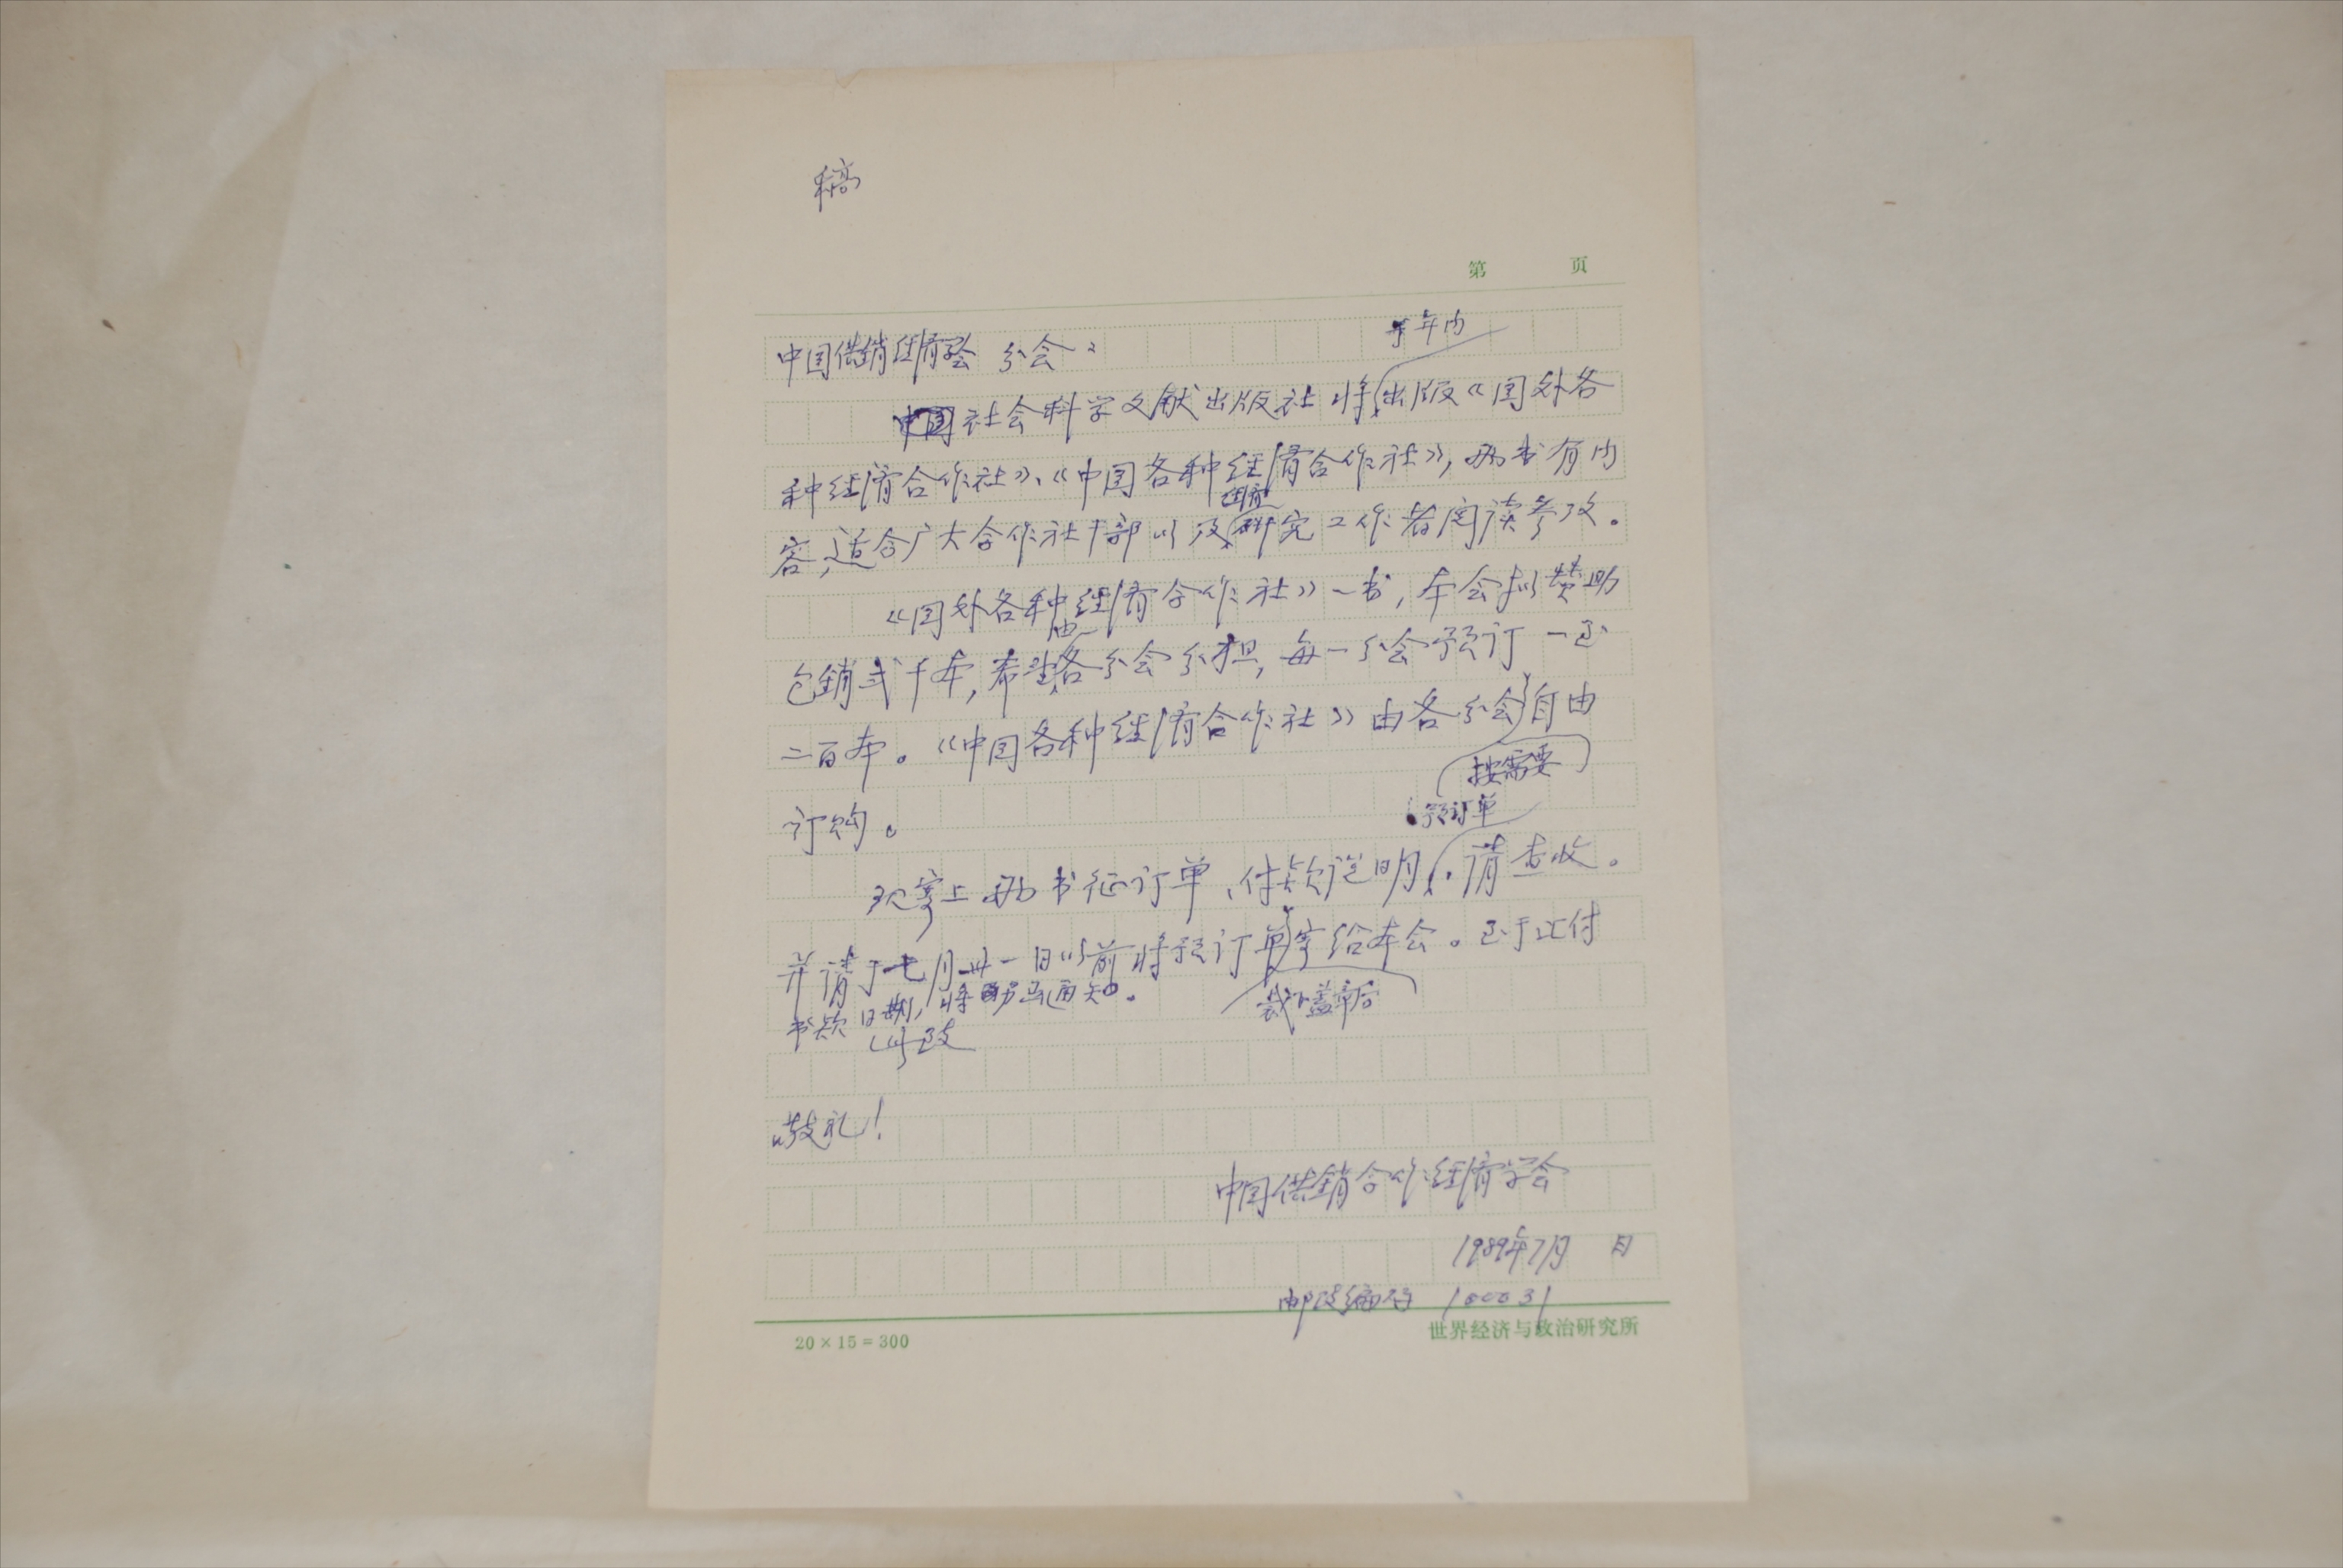 稿
第 页
中国供销经济学会 分会：
于年内
中国社会科学文献出版社将出版《国外各
种经济合作社》、《中国各种经济合作社》，两书有内
经济
容，适合广大合作社干部以及研究工作者阅读参考。
《国外各种经济合作社》一书，本会拟赞助
由
包销弍千本，希望各分会分担，每一分会预订一至
二百本。《中国各种经济合作社》由各分会自由
按需要
订购。
预订单
现寄上两书征订单、付款说明，请查收。
并请于七月卅一日以前将预订单寄给本会。至于汇付
裁下盖章后
书款日期，将另函通知。
此致
敬礼！
中国供销合作经济学会
1989年7月 日
邮政编码 100031
20×15=300
世界经济与政治研究所